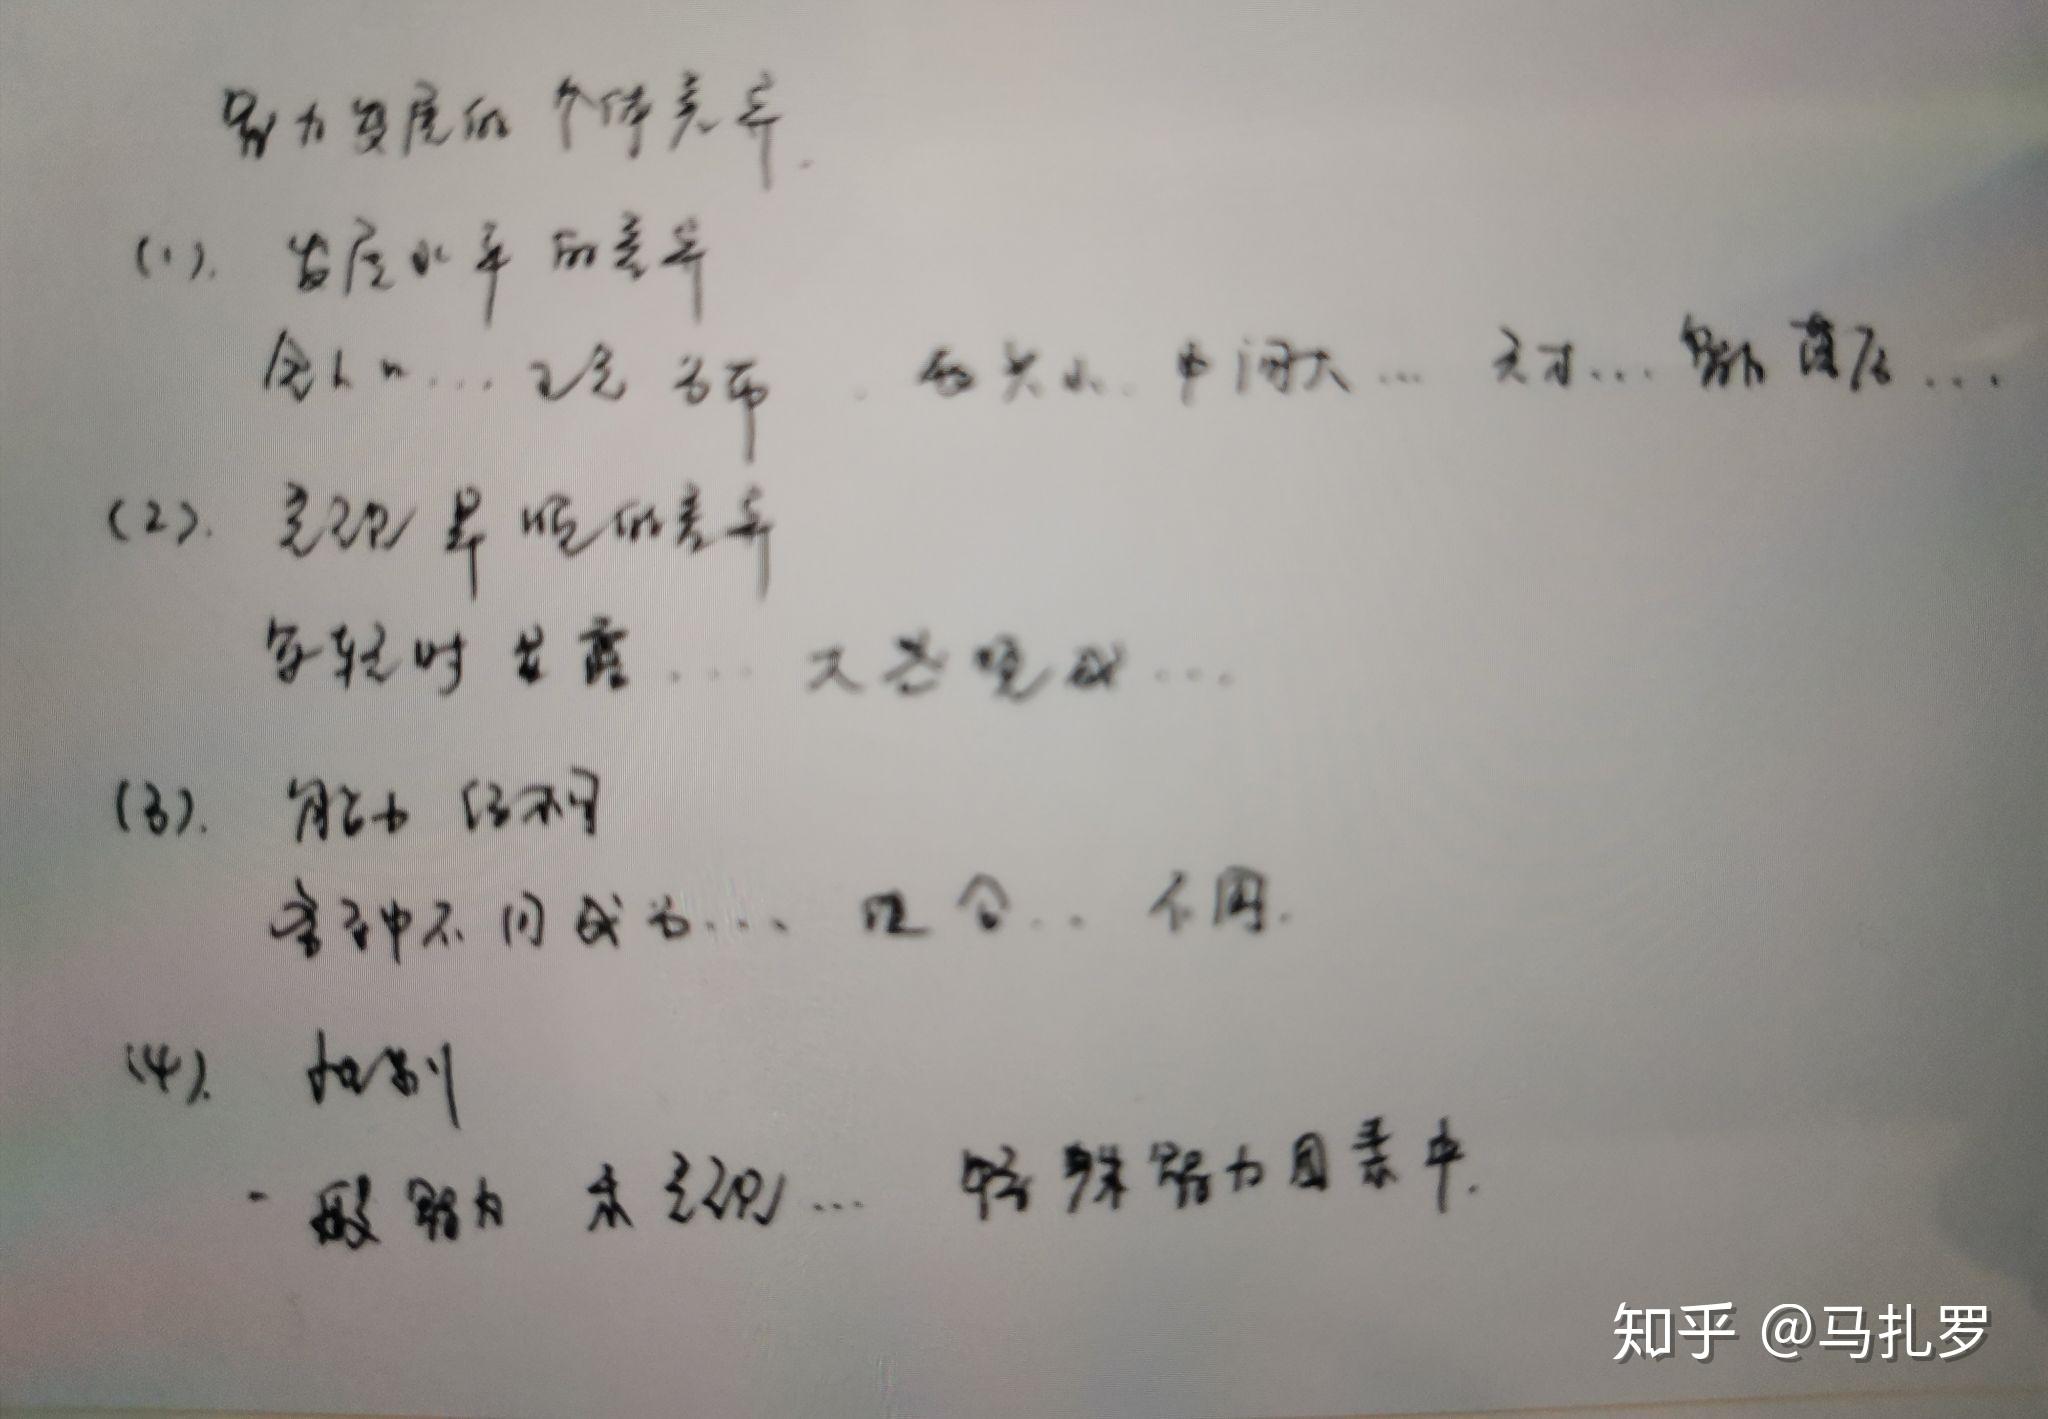 能力发展的个体差异.
(1). 发展水平的差异
全人口...正态分布. 两头小. 中间大... 天才... 能力落后...
(2). 表现早晚的差异
年轻时显露... 大器晚成...
(3). 能力结构
各种不同成分... 组合... 不同.
(4). 性别
一般能力未表现... 特殊能力因素中.
知乎 @马扎罗